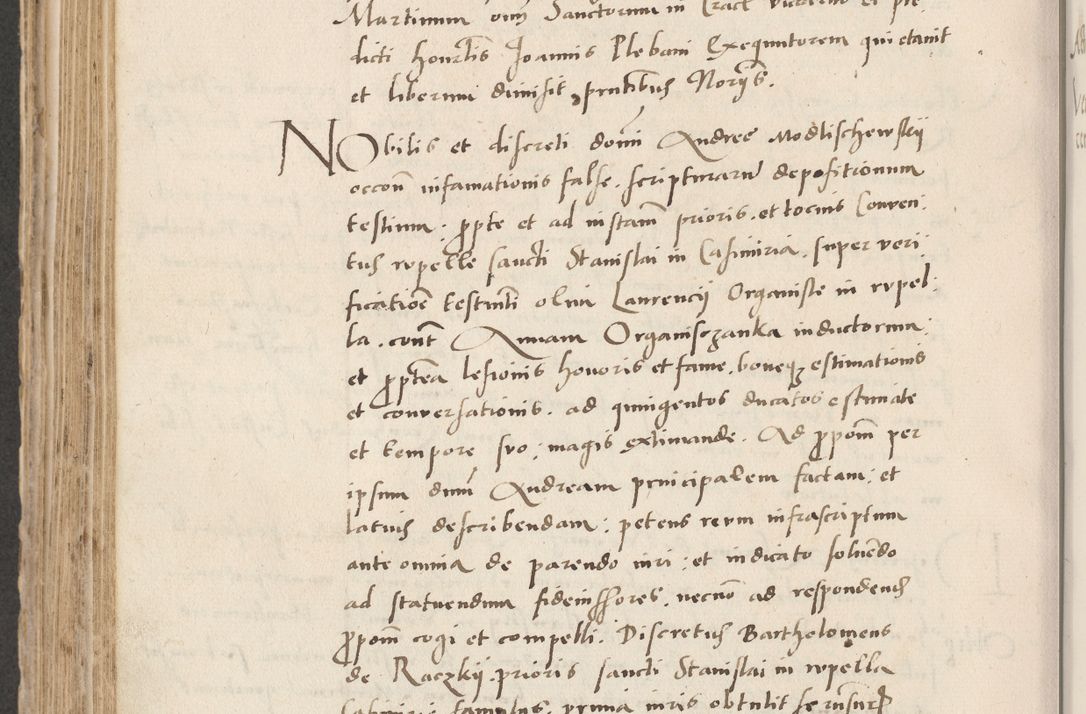 Martinum omn Sanctorum in
dicti honorabilis Joannis Plebani Exequutorem qui etanit
et liberum dimisit, pntibus Norijs.
NObilis et discreti domi Andree Modlischewskij
occon infamationis false, scripturarum depositionum
testium, ppte et ad instam prioris et tocius Conven:
tus repelle sancti Stanislai in Casimiria, super veri
ficatioe testinti olim Laurencij Organiste in rupel:
la, cont Annam Organisczanka inductorum:
et pptea lesionis honoris et fame, boneq estimationis
et conversationis, ad quingentos ducatos estimate
et tempore suo, magis extimande. Ad ppom per
ipsum dnm Andream principalem factam, et
latius describendam, petens reum infrascriptum
ante omnia de parendo iuri, et iudicato solvendo
ad statuendum fideiussores, necno ad respondend
ppom cogi et compelli. Discretus Bartholomeus
de Raczkij, prioris sancti Stanislai in rupella
famulus, prima iuris obtulit se